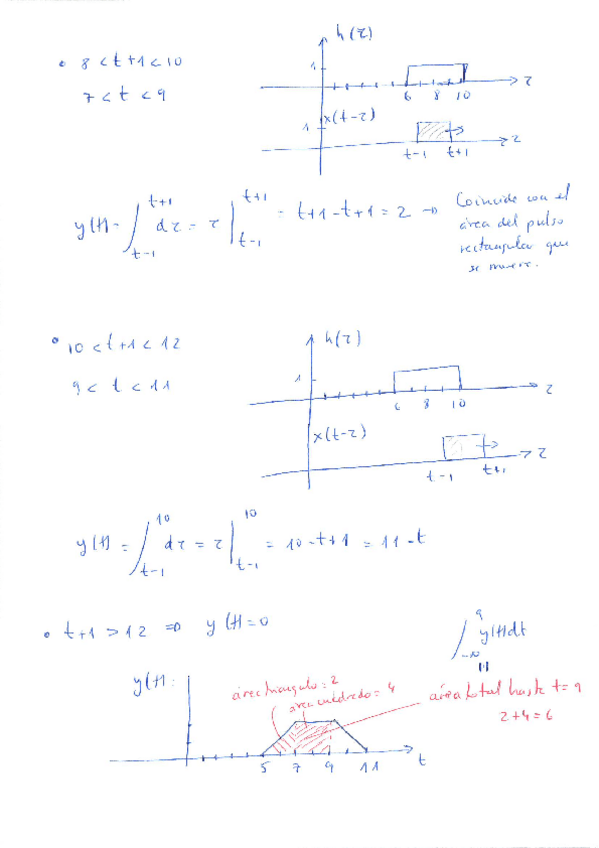 • 8 < t+1 < 10
7 < t < 9
h(τ)
1
6 8 10 τ
x(t-τ)
1
t-1 t+1 τ
y(t) = ∫_{t-1}^{t+1} dτ = τ |_{t-1}^{t+1} = t+1-t+1 = 2 → Coincide con el
área del pulso
rectangular que
se mueve.
• 10 < t+1 < 12
9 < t < 11
h(τ)
1
6 8 10 τ
x(t-τ)
t-1 t+1 τ
y(t) = ∫_{t-1}^{10} dτ = τ |_{t-1}^{10} = 10-t+1 = 11-t
• t+1 > 12 ⇒ y(t)=0
∫_{-∞}^{9} y(t)dt
y(t):
área triángulo = 2
área cuadrado = 4
área total hasta t=9
2+4=6
5 7 9 11 t